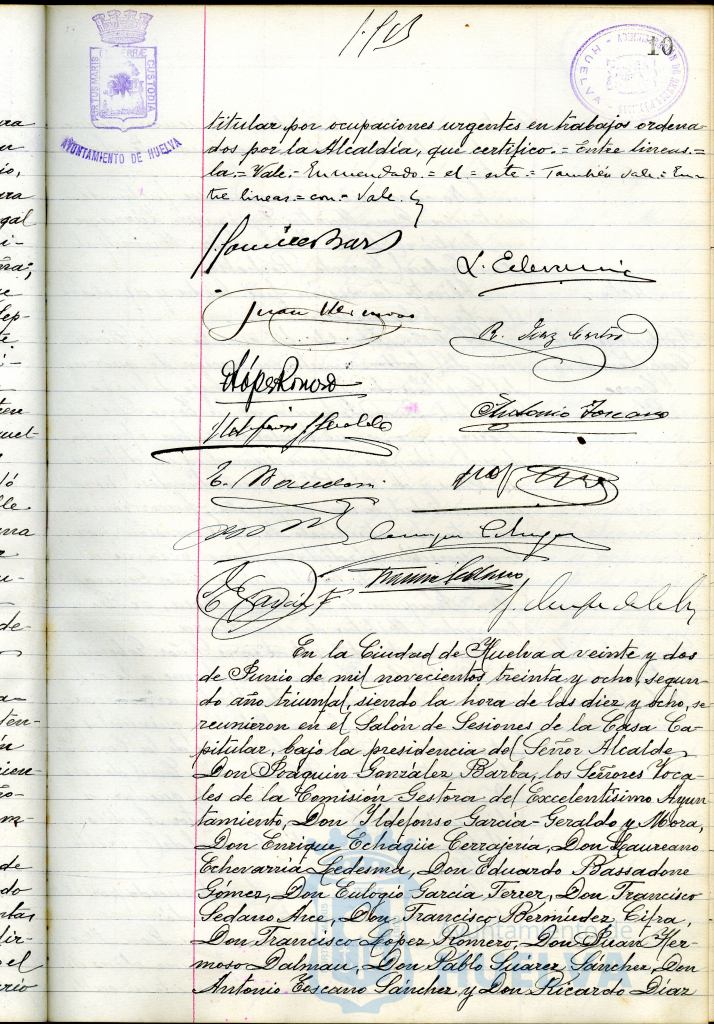 10
PORTUS MARIS
CUSTODIA
AYUNTAMIENTO DE HUELVA
HUELVA
titular por ocupaciones urgentes en trabajos ordena-
dos por la Alcaldía, que certifico.= Entre lineas.=
la.= Vale.= Enmendado.= el = ente = También vale.= En-
tre lineas.= con.= Vale.
L. Echevarria
Juan Hermoso
R. Diaz Castro
López Romero
Antonio Toscano
E. Bassadone
Enrique Echague
Francisco Sedano
E. García F
En la Ciudad de Huelva a veinte y dos
de Junio de mil novecientos treinta y ocho, segun-
do año triunfal, siendo la hora de las diez y ocho, se
reunieron en el Salón de Sesiones de la Casa Ca-
pitular, bajo la presidencia del Señor Alcalde
Don Joaquín González Barba, los Señores Voca-
les de la Comisión Gestora del Excelentísimo Ayun-
tamiento, Don Ildefonso García-Geraldo y Mora,
Don Enrique Echagüe Cerrajería, Don Laureano
Echevarría Ledesma, Don Eduardo Bassadone
Gómez, Don Eulogio García Ferrer, Don Francisco
Sedano Arce, Don Francisco Bermúdez Cifra,
Don Francisco López Romero, Don Juan Her-
moso Dalmau, Don Pablo Suárez Sánchez, Don
Antonio Toscano Sánchez y Don Ricardo Díaz
Ayuntamiento de
HUELVA